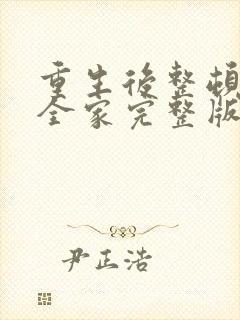 重生后整頓
全家完整版
尹正浩